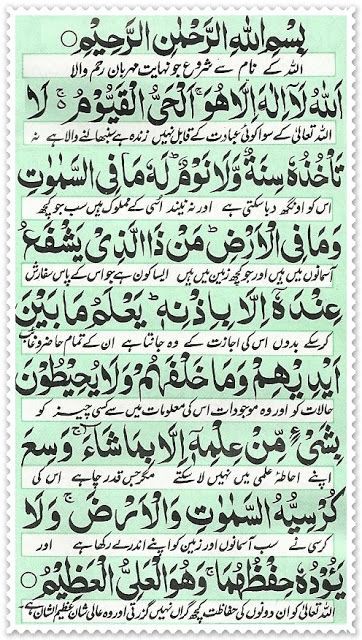 بِسْمِ اللهِ الرَّحْمٰنِ الرَّحِيْمِ ○
اللہ کے نام سے شروع جو نہایت مہربان رحم والا
اَللهُ لَآ اِلٰهَ اِلَّا هُوَ ۚ اَلْحَيُّ الْقَيُّوْمُ ۚ لَا
اللہ تعالیٰ کے سوا کوئی عبادت کے قابل نہیں زندہ ہے سنبھالنے والا ہے نہ
تَأْخُذُهٗ سِنَةٌ وَّلَا نَوْمٌ ؕ لَهٗ مَا فِي السَّمٰوٰتِ
اس کو اونگھ دبا سکتی ہے اور نہ نیند اسی کے مملوک ہیں سب جو کچھ
وَمَا فِي الْاَرْضِ ؕ مَنْ ذَا الَّذِيْ يَشْفَعُ
آسمانوں میں ہیں اور جو کچھ زمین میں ہیں ایسا کون ہے جو اس کے پاس سفارش
عِنْدَهٗٓ اِلَّا بِاِذْنِهٖ ؕ يَعْلَمُ مَا بَيْنَ
کرسکے بدوں اس کی اجازت کے وہ جانتا ہے ان کے تمام حاضر و غائب
اَيْدِيْهِمْ وَمَا خَلْفَهُمْ ۚ وَلَا يُحِيْطُوْنَ
حالات کو اور وہ موجودات اس کی معلومات میں سے کسی چیز کو
بِشَيْءٍ مِّنْ عِلْمِهٖٓ اِلَّا بِمَا شَآءَ ۚ وَسِعَ
اپنے احاطۂ علمی میں نہیں لا سکتے مگر جس قدر چاہے اس کی
كُرْسِيُّهُ السَّمٰوٰتِ وَالْاَرْضَ ۚ وَلَا
کرسی نے سب آسمانوں اور زمین کو اپنے اندر لے رکھا ہے اور
يَـُٔوْدُهٗ حِفْظُهُمَا ۚ وَهُوَ الْعَلِيُّ الْعَظِيْمُ ○
اللہ تعالیٰ کو ان دونوں کی حفاظت کچھ گراں نہیں گزرتی اور وہ عالی شان عظیم الشان ہے